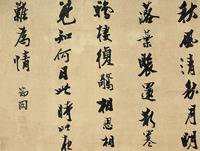 秋風清秋月明
落葉聚還散寒
鴉棲復驚相思相
見知何日此時此夜
難為情